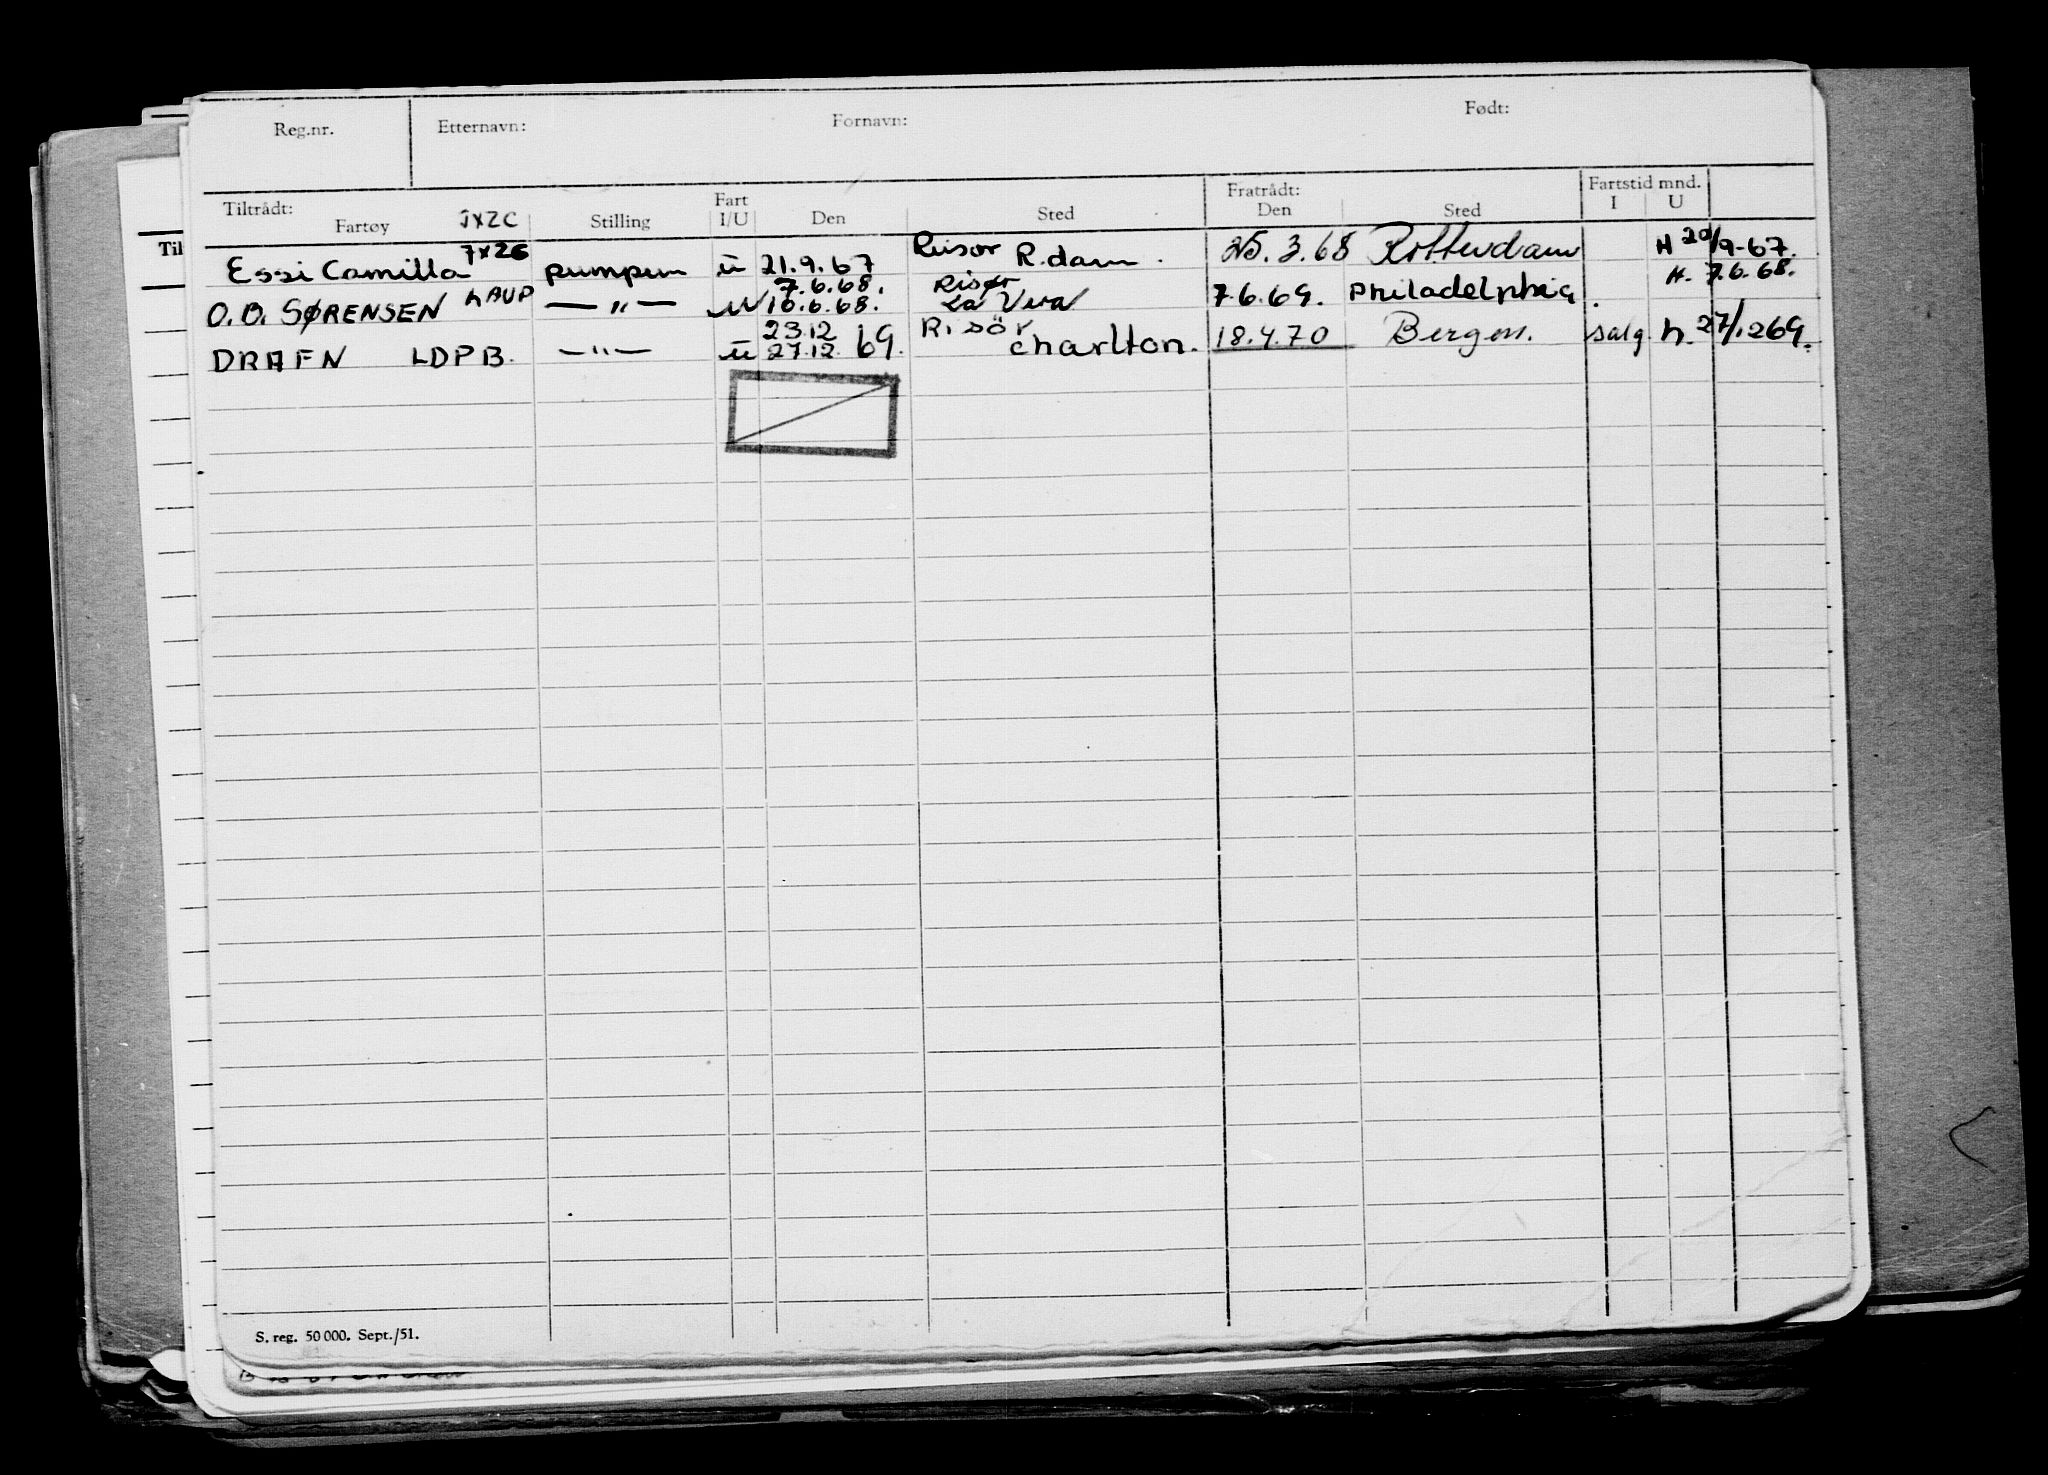 Reg.nr. Etternavn: Fornavn: Født:
Tiltrådt: Fart Fratrådt: Fartstid mnd.
Fartøy JXZC Stilling I/U Den Sted Den Sted I U
Essi Camilla 7XZG pumpem u 21.9.67 Risør R.dam. 25.3.68 Rotterdam H 20/9-67.
7.6.68. Risør H. 7.6.68.
O.B. SØRENSEN LAUP —"— u 10.6.68. 7.6.69. Philadelphia.
23.12 Risör
DRAFN LDPB. —"— u 27.12. 69. Charlton. 18.4.70 Bergen. salg h. 27/1269.
Til
S. reg. 50 000. Sept./51.